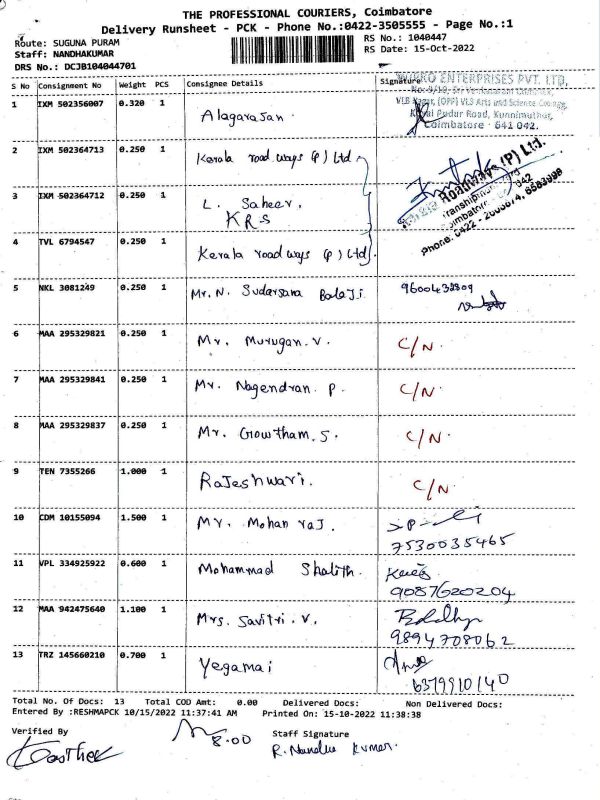 THE PROFESSIONAL COURIERS, Coimbatore
Delivery Runsheet - PCK - Phone No.:0422-3505555 - Page No.:1
Route: SUGUNA PURAM
RS No.: 1040447
Staff: NANDHAKUMAR
RS Date: 15-Oct-2022
DRS No.: DCJB104044701
S No Consignment No Weight PCS Consignee Details Signature
1 IXM 502356007 0.320 1 Alagarasan.
ENTERPRISES PVT. LTD,
VLB Nagar, (OPP) VLB Arts and Science College,
Pudur Road, Kunnimuthur,
Coimbatore - 641 042.
2 IXM 502364713 0.250 1 Kerala road ways (P) Ltd
Roadways (P) Ltd.
3 IXM 502364712 0.250 1 L. Saheer,
KRS
4 TVL 6794547 0.250 1 Kerala road ways (P) Ltd.
5 NKL 3081249 0.250 1 Mr. N. Sudarsana Balaji. 9600432809
6 MAA 295329821 0.250 1 Mr. Murugan. V. C/N.
7 MAA 295329841 0.250 1 Mr. Nagendran. P. C/N.
8 MAA 295329837 0.250 1 Mr. Gowtham. S. C/N.
9 TEN 7355266 1.000 1 Rajeshwari. C/N.
10 CDM 10155094 1.500 1 Mr. Mohan raj.
7530035465
11 VPL 334925922 0.600 1 Mohammad Shalith.
9087620204
12 MAA 942475640 1.100 1 Mrs. Savitri. V.
9894708062
13 TRZ 145660210 0.700 1 Yegamai
6379910140
Total No. Of Docs: 13 Total COD Amt: 0.00 Delivered Docs: Non Delivered Docs:
Entered By :RESHMAPCK 10/15/2022 11:37:41 AM Printed On: 15-10-2022 11:38:38
Verified By 8.00 Staff Signature
R. Nandha Kumar.